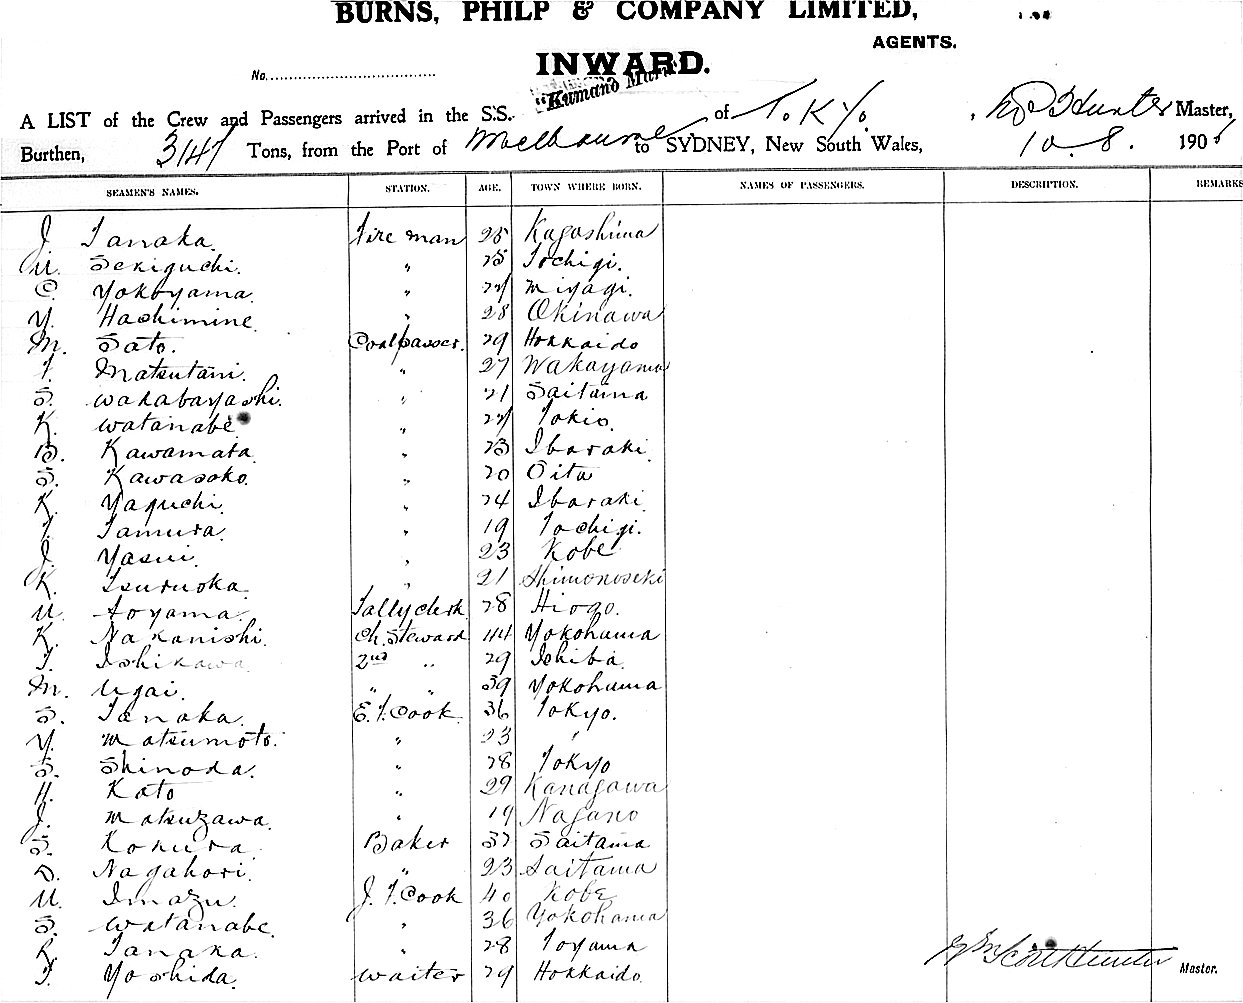 BURNS, PHILP & COMPANY LIMITED,
AGENTS.
No.
INWARD.
A LIST of the Crew and Passengers arrived in the S.S. "Kumano Maru" of Tokyo. Hunter Master,
Burthen, 3147 Tons, from the Port of Melbourne to SYDNEY, New South Wales, 10.8. 190
SEAMEN'S NAMES. STATION. AGE. TOWN WHERE BORN. NAMES OF PASSENGERS. DESCRIPTION. REMARKS
J. Tanaka. Fire man 25 Kagoshima
U. Sekiguchi. " 25 Tochigi.
C. Yokoyama. " Miyagi.
Y. Hashimine. " 28 Okinawa
M. Sato. Coalpasser. 29 Hokkaido
T. Matsutani. " 27 Wakayama
S. Wakabayashi. " 21 Saitama
K. Watanabe " Tokio.
B. Kawamata. " 23 Ibaraki.
S. Kawasoko. " 20 Oita
K. Yaguchi. " 24 Ibaraki.
T. Tamura. " 19 Tochigi.
J. Yasui. " 23 Kobe
K. Tsuruoka. " 21 Shimonoseki
U. Aoyama. Tally clerk 28 Hiogo.
K. Nakanishi. Ch. Steward 44 Yokohama
T. Ishikawa. 2nd " 29 Ichiba.
M. Ugai. " " 39 Yokohama
S. Tanaka. E.T. Cook. 36 Tokyo.
Y. Matsumoto. " 23 "
S. Shinoda. " 28 Tokyo
H. Kato " 29 Kanagawa
J. Matsuzawa. " 19 Nagano
S. Kokura. Baker 37 Saitama
D. Nagahori. " 23 Saitama
U. Imazu. J.T. Cook 40 Kobe
S. Watanabe. " 36 Yokohama
K. Tanaka. " 28 Toyama
T. Yoshida. Waiter 29 Hokkaido.
Scott Hunter Master.